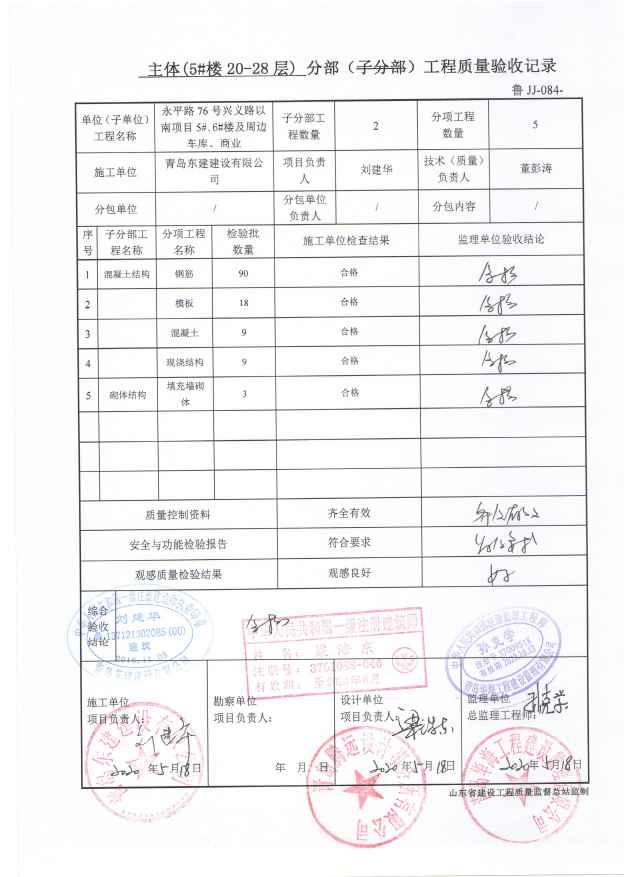 主体(5#楼 20-28 层) 分部（子分部）工程质量验收记录
鲁 JJ-084-
单位（子单位）工程名称 永平路 76 号兴义路以南项目 5#、6#楼及周边车库、商业 子分部工程数量 2 分项工程数量 5
施工单位 青岛东建建设有限公司 项目负责人 刘建华 技术（质量）负责人 董彭涛
分包单位 / 分包单位负责人 / 分包内容 /
序号 子分部工程名称 分项工程名称 检验批数量 施工单位检查结果 监理单位验收结论
1 混凝土结构 钢筋 90 合格 合格
2 模板 18 合格 合格
3 混凝土 9 合格 合格
4 现浇结构 9 合格 合格
5 砌体结构 填充墙砌体 3 合格 合格
质量控制资料 齐全有效
安全与功能检验报告 符合要求
观感质量检验结果 观感良好
综合验收结论 合格
刘建华
建筑
施工单位
项目负责人：
刘建华
2020 年 5 月 18 日
勘察单位
项目负责人：
年 月 日
设计单位
项目负责人：
2020 年 5 月 18 日
监理单位
总监理工程师：
2020 年 5 月 18 日
山东省建设工程质量监督总站监制